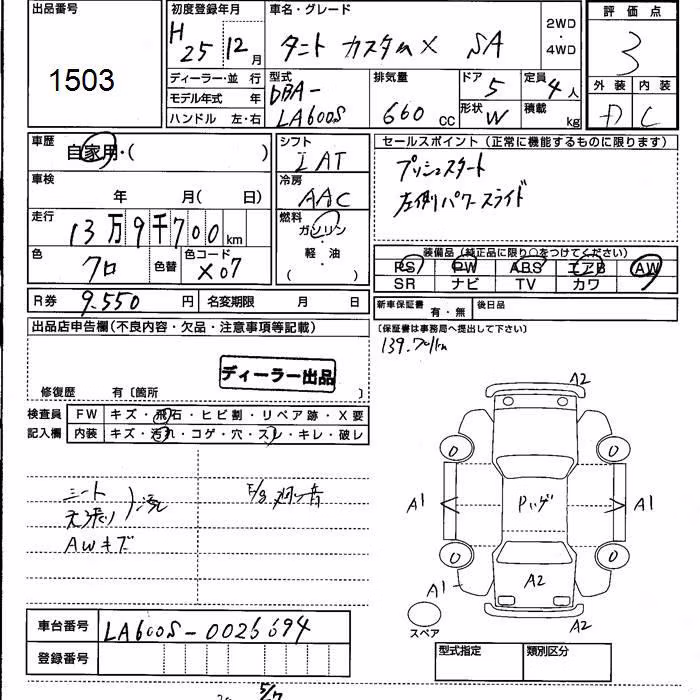 出品番号
1503
初度登録年月
H 25 12月
車名・グレード
タント カスタムX SA
2WD・4WD
評価点
3
外装 内装
D C
ディーラー・並行
モデル年式 年
ハンドル 左・右
型式
DBA-
LA600S
排気量
660 cc
ドア 5
形状 W
定員 4人
積載 kg
車歴
自家用・( )
車検
年 月( 日)
走行
13万9千700km
色
クロ
色替
色コード
X07
シフト
IAT
冷房
AAC
燃料
ガソリン
・
軽・油
( )
セールスポイント(正常に機能するものに限ります)
プッシュスタート
左側パワースライド
装備品(純正品に限り○をつけてください)
PS PW ABS エアB AW
SR ナビ TV カワ
新車保証書 有・無 後日品
〔保証書は事務局へ提出して下さい〕
R券 9,550円 名変期限 月 日
出品店申告欄(不良内容・欠品・注意事項等記載)
ディーラー出品
修復歴 有〔箇所 〕
検査員記入欄
FW キズ・飛石・ヒビ割・リペア跡・X要
内装 キズ・汚れ・コゲ・穴・スレ・キレ・破レ
シート
天張り
AWキズ
139,701km
A2
0 0
A1 Pハゲ A1
0 0
A1 A2
A2
スペア
車台番号
登録番号
型式指定 類別区分